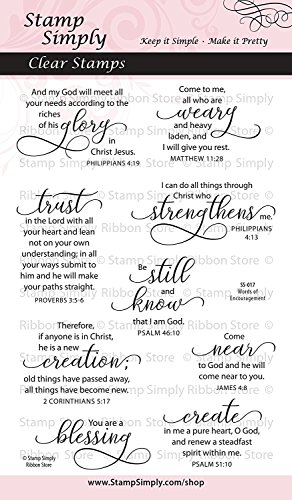 Stamp
Simply
Keep it Simple · Make it Pretty
Clear Stamps
And my God will meet all
your needs according to the
riches
of his glory in
Christ Jesus.
PHILIPPIANS 4:19
Come to me,
all who are
weary
and heavy
laden, and
I will give you rest.
MATTHEW 11:28
trust
in the Lord with all
your heart and lean
not on your own
understanding; in all
your ways submit to
him and he will make
your paths straight.
PROVERBS 3:5-6
I can do all things through
Christ who
strengthens me.
PHILIPPIANS
4:13
Be
still
and
know
that I am God.
PSALM 46:10
SS-017
Words of
Encouragement
Therefore,
if anyone is in Christ,
he is a new
creation;
old things have passed away,
all things have become new.
2 CORINTHIANS 5:17
Come
near
to God and he will
come near to you.
JAMES 4:8
You are a
blessing
create
in me a pure heart, O God,
and renew a steadfast
spirit within me.
PSALM 51:10
© Stamp Simply
Ribbon Store
www.StampSimply.com/shop